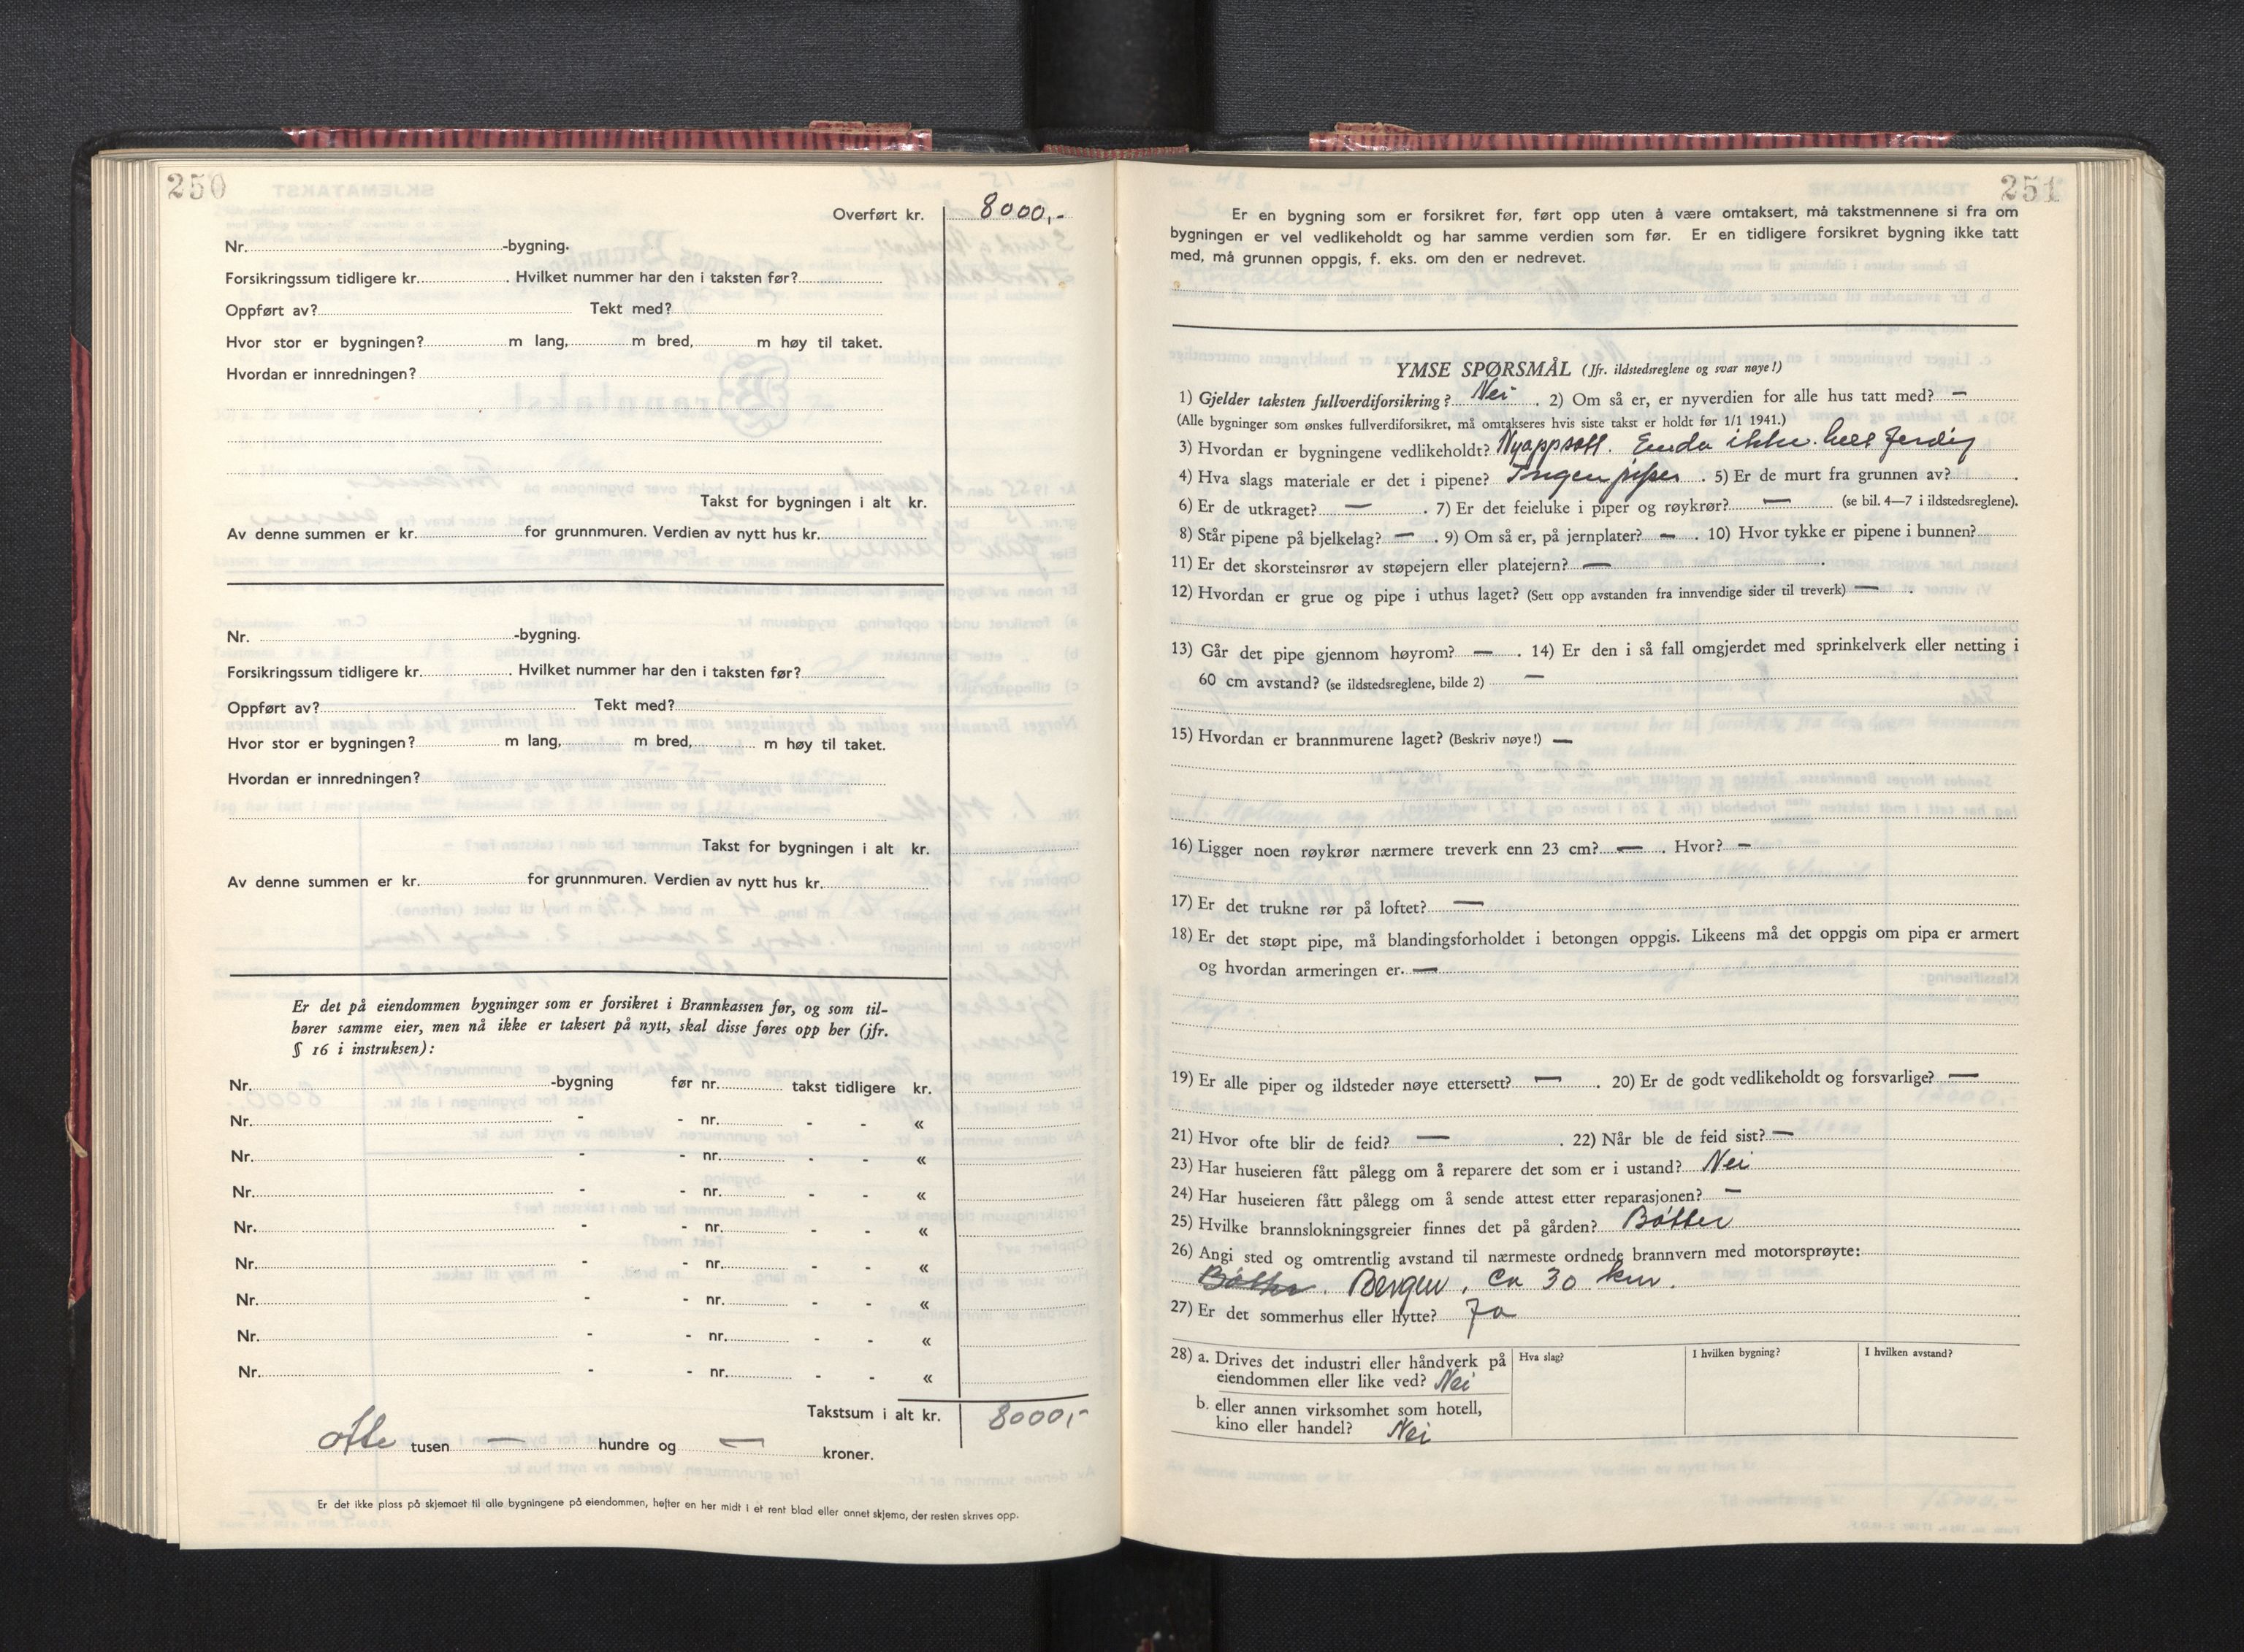 250
Overført kr. 8000,-
Nr. -bygning.
Forsikringssum tidligere kr. . Hvilket nummer har den i taksten før?
Oppført av? Tekt med?
Hvor stor er bygningen? m lang, m bred, m høy til taket.
Hvordan er innredningen?
Takst for bygningen i alt kr.
Av denne summen er kr. for grunnmuren. Verdien av nytt hus kr.
Nr. -bygning.
Forsikringssum tidligere kr. . Hvilket nummer har den i taksten før?
Oppført av? Tekt med?
Hvor stor er bygningen? m lang, m bred, m høy til taket.
Hvordan er innredningen?
Takst for bygningen i alt kr.
Av denne summen er kr. for grunnmuren. Verdien av nytt hus kr.
Er det på eiendommen bygninger som er forsikret i Brannkassen før, og som til-
hører samme eier, men nå ikke er taksert på nytt, skal disse føres opp her (jfr.
§ 16 i instruksen):
Nr. -bygning før nr. takst tidligere kr.
Nr. - - nr. - - «
Nr. - - nr. - - «
Nr. - - nr. - - «
Nr. - - nr. - - «
Nr. - - nr. - - «
Nr. - - nr. - - «
Nr. - - nr. - - «
Nr. - - nr. - - «
Takstsum i alt kr. 8000,-
otte tusen — hundre og — kroner.
Er det ikke plass på skjemaet til alle bygningene på eiendommen, hefter en her midt i et rent blad eller annet skjema, der resten skrives opp.
251
Er en bygning som er forsikret før, ført opp uten å være omtaksert, må takstmennene si fra om
bygningen er vel vedlikeholdt og har samme verdien som før. Er en tidligere forsikret bygning ikke tatt
med, må grunnen oppgis, f. eks. om den er nedrevet.
YMSE SPØRSMÅL (Jfr. ildstedsreglene og svar nøye!)
1) Gjelder taksten fullverdiforsikring? Nei . 2) Om så er, er nyverdien for alle hus tatt med? —
(Alle bygninger som ønskes fullverdiforsikret, må omtakseres hvis siste takst er holdt før 1/1 1941.)
3) Hvordan er bygningene vedlikeholdt? Nyoppsatt. Enda ikke hell ferdig
4) Hva slags materiale er det i pipene? Ingen piper . 5) Er de murt fra grunnen av? .
6) Er de utkraget? — . 7) Er det feieluke i piper og røykrør? — (se bil. 4—7 i ildstedsreglene).
8) Står pipene på bjelkelag? — . 9) Om så er, på jernplater? — . 10) Hvor tykke er pipene i bunnen?
11) Er det skorsteinsrør av støpejern eller platejern? — .
12) Hvordan er grue og pipe i uthus laget? (Sett opp avstanden fra innvendige sider til treverk) — .
13) Går det pipe gjennom høyrom? — . 14) Er den i så fall omgjerdet med sprinkelverk eller netting i
60 cm avstand? (se ildstedsreglene, bilde 2) —
15) Hvordan er brannmurene laget? (Beskriv nøye!) —
16) Ligger noen røykrør nærmere treverk enn 23 cm? — . Hvor? —
17) Er det trukne rør på loftet? —
18) Er det støpt pipe, må blandingsforholdet i betongen oppgis. Likeens må det oppgis om pipa er armert
og hvordan armeringen er. —
19) Er alle piper og ildsteder nøye ettersett? — . 20) Er de godt vedlikeholdt og forsvarlige? —
21) Hvor ofte blir de feid? — . 22) Når ble de feid sist? —
23) Har huseieren fått pålegg om å reparere det som er i ustand? Nei
24) Har huseieren fått pålegg om å sende attest etter reparasjonen? —
25) Hvilke brannslokningsgreier finnes det på gården? Bøtter
26) Angi sted og omtrentlig avstand til nærmeste ordnede brannvern med motorsprøyte:
Bøtter . Bergen, ca 30 km.
27) Er det sommerhus eller hytte? Ja
28) a. Drives det industri eller håndverk på
eiendommen eller like ved? Nei
Hva slag?
I hvilken bygning?
I hvilken avstand?
b. eller annen virksomhet som hotell,
kino eller handel? Nei